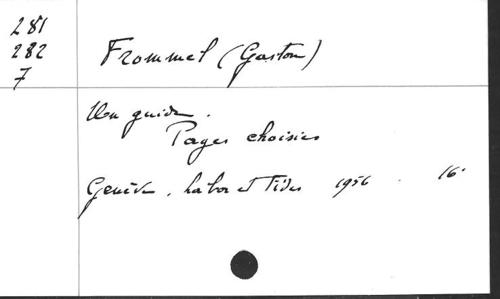 281
282
7
Frommel (Gaston)
Un guide.
Pages choisies
Genève, Labor et Fides 1956. 16°